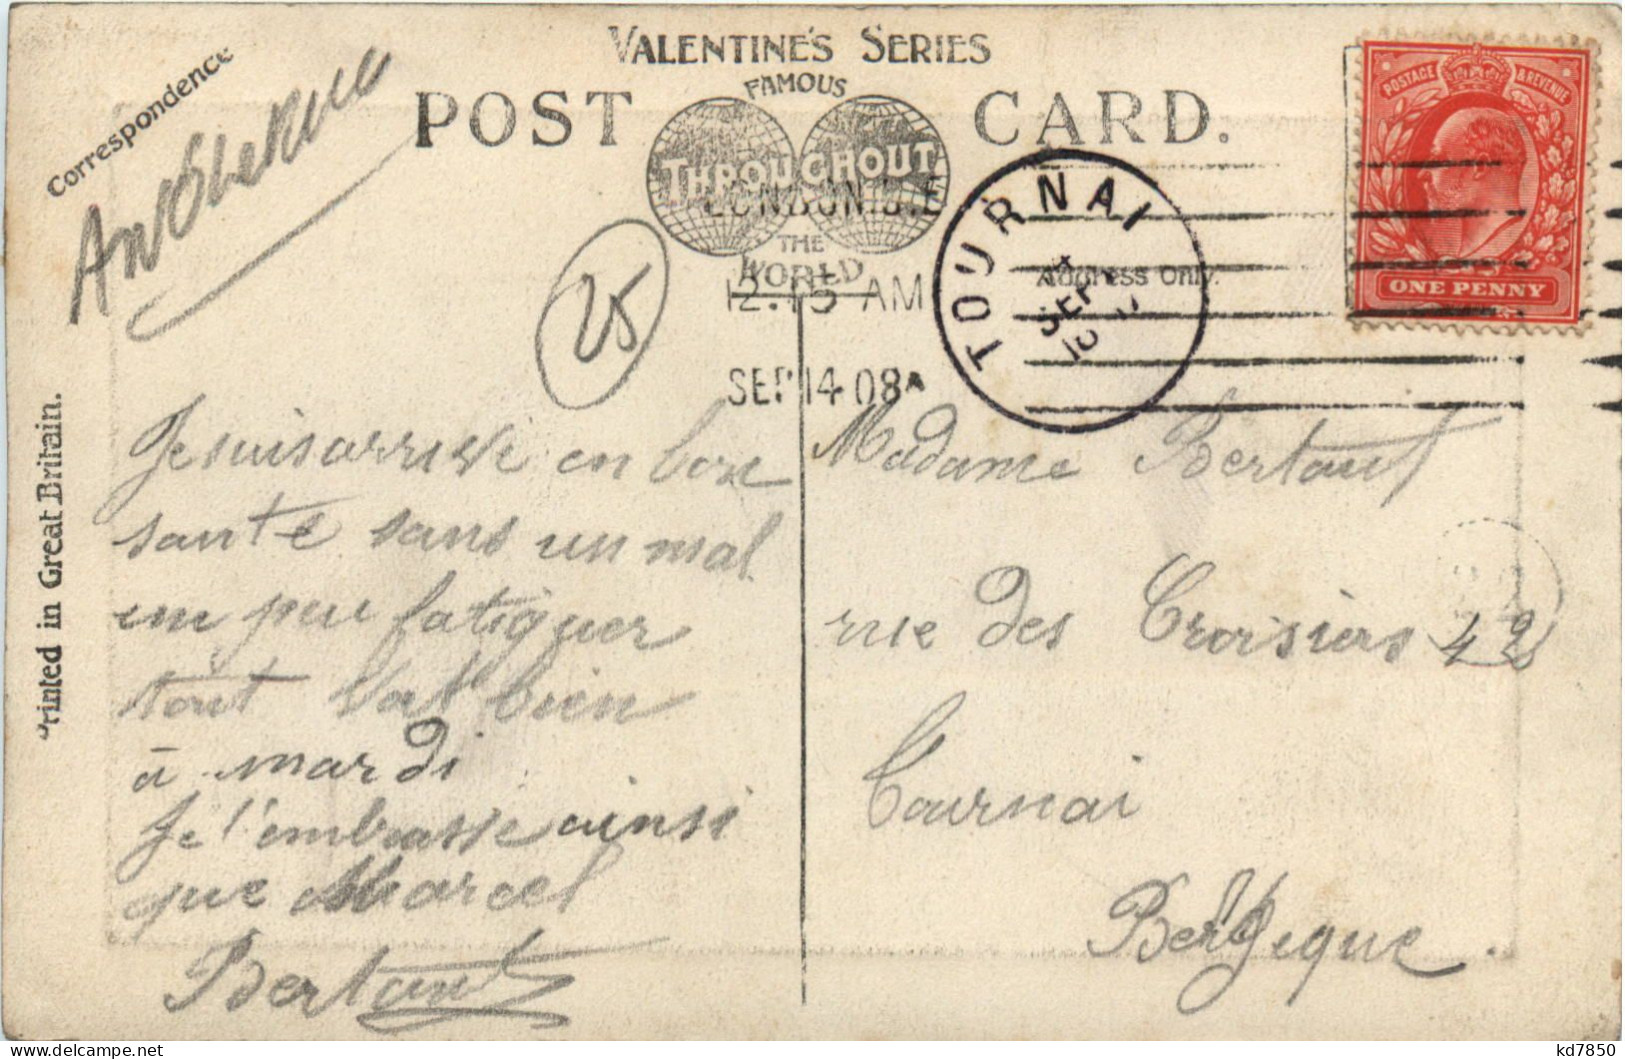 VALENTINE'S SERIES
FAMOUS
POST CARD.
THROUGHOUT
THE
WORLD
Correspondence
Address Only.
Printed in Great Britain.
LONDON. S.E
12.15 AM
SEP 14 08 A
TOURNAI
SEP
POSTAGE & REVENUE
ONE PENNY
25
Je suis arrivé en bon
santé sans un mal
un peu fatiguer
tout vat bien
à mardi
Je t'embrasse ainsi
que Marcel
Bertaut
Madame Bertaut
rue des Croisiers 42
Tournai
Belgique.
kd7850